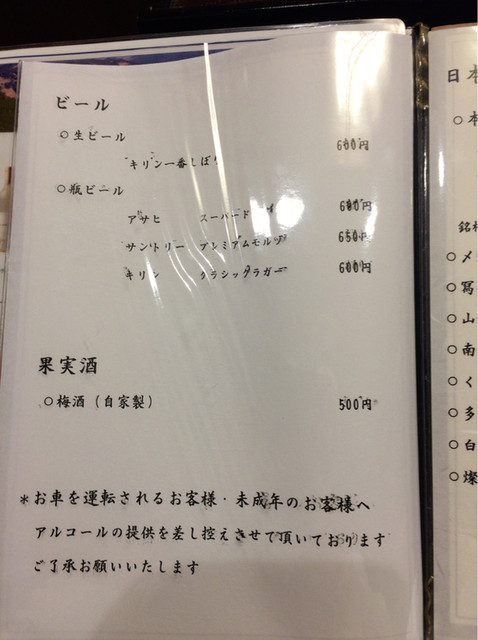 ビール
○生ビール 600円
キリン一番しぼり
○瓶ビール
アサヒ スーパードライ 600円
サントリー プレミアムモルツ 650円
キリン クラシックラガー 600円
果実酒
○梅酒（自家製） 500円
＊お車を運転されるお客様・未成年のお客様へ
アルコールの提供を差し控えさせて頂いております
ご了承お願いいたします
日本
○本
銘柄
○メ
○冩
○山
○南
○く
○多
○白
○燦